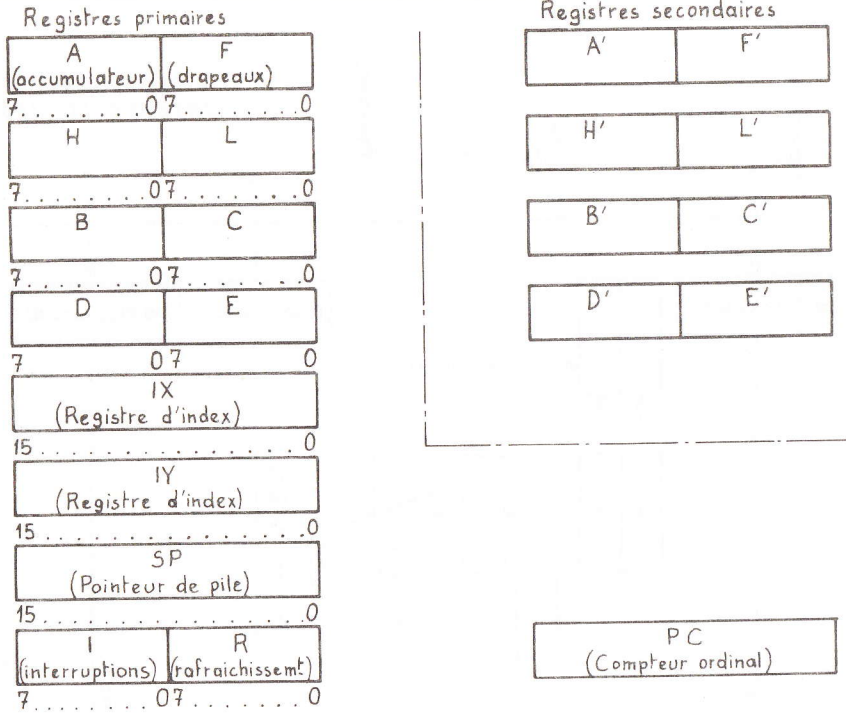 Registres primaires
A F
(accumulateur) (drapeaux)
7.........07........0
H L
7.........07........0
B C
7.........07........0
D E
7 07 0
IX
(Registre d'index)
15................0
IY
(Registre d'index)
15................0
SP
(Pointeur de pile)
15................0
I R
(interruptions) (rafraichissemt)
7.........07........0
Registres secondaires
A' F'
H' L'
B' C'
D' E'
PC
(Compteur ordinal)